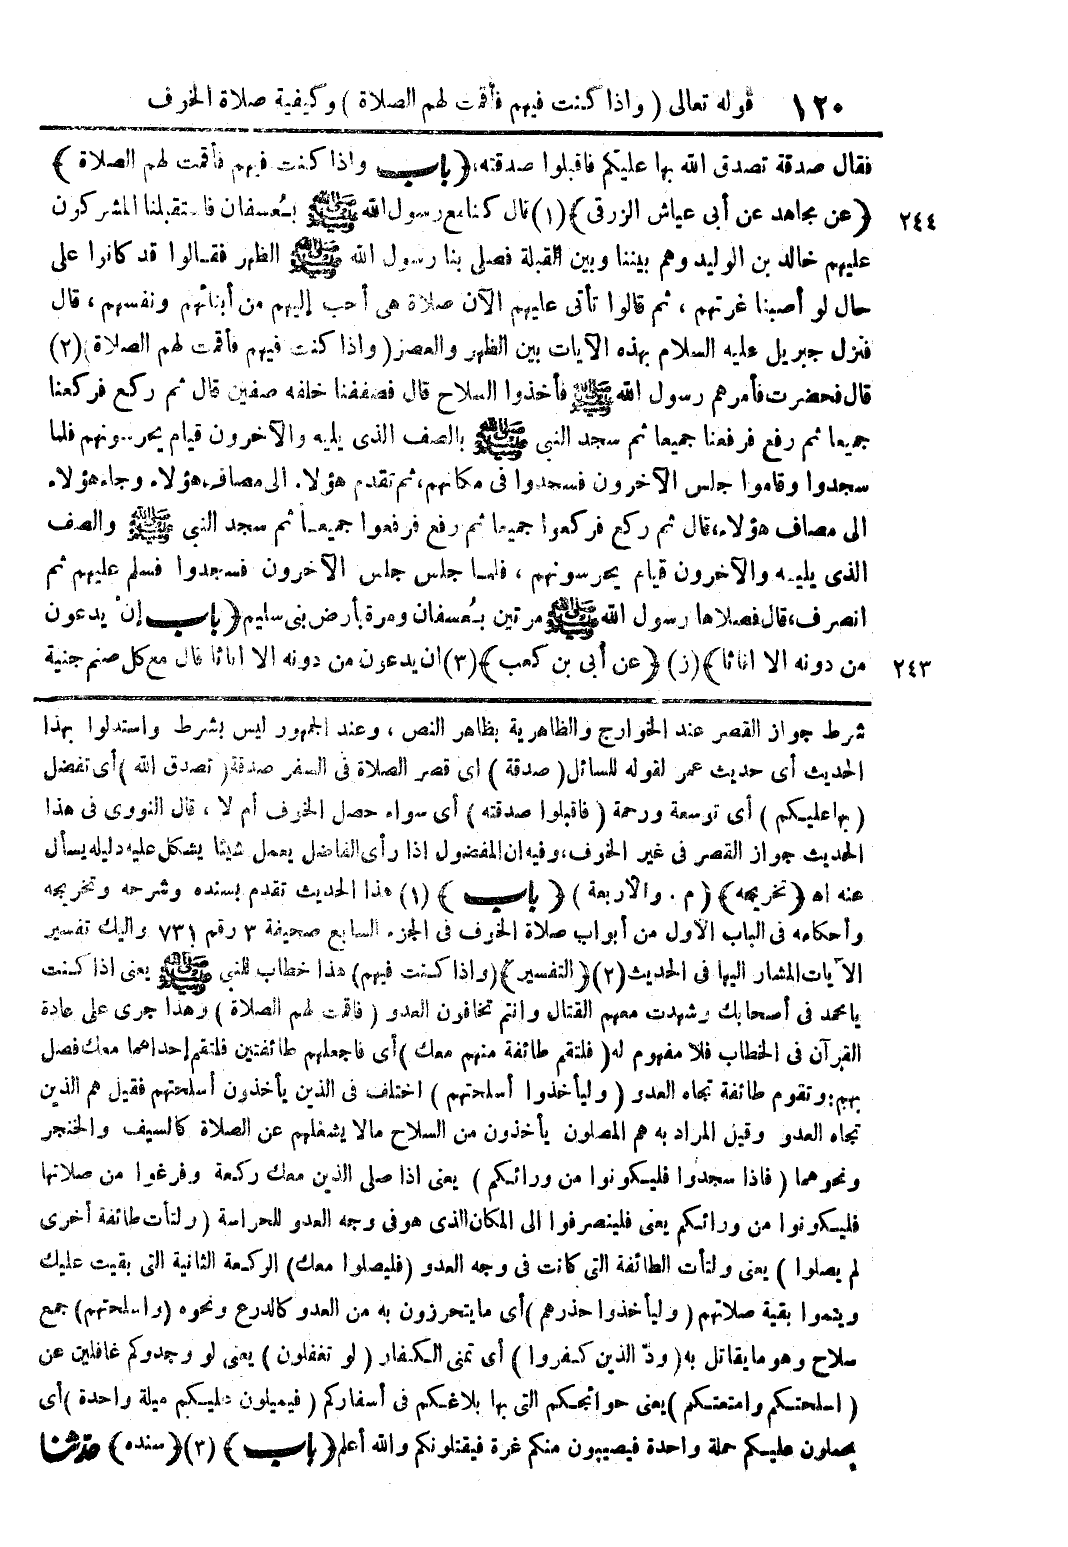 ١٢٠ قوله تعالى ( واذا كنت فيهم فأقمت لهم الصلاة ) وكيفية صلاة الخوف
فقال صدقة تصدق الله بها عليكم فاقبلوا صدقته، ﴿ باب واذا كنت فيهم فأقمت لهم الصلاة ﴾
٢٤٤ ﴿ عن مجاهد عن أبى عياش الزرقى ﴾ (١) قال كنا مع رسول الله ﷺ بعُسفان فاستقبلنا المشركون
عليهم خالد بن الوليد وهم بيننا وبين القبلة فصلى بنا رسول الله ﷺ الظهر فقالوا قد كانوا على
حال لو أصبنا غرتهم ، ثم قالوا تأتى عليهم الآن صلاة هى أحب إليهم من أبنائهم ونفسهم ، قال
فنزل جبريل عليه السلام بهذه الآيات بين الظهر والعصر ( واذا كنت فيهم فأقمت لهم الصلاة ) (٢)
قال فحضرت فأمرهم رسول الله ﷺ فأخذوا السلاح قال فصففنا خلفه صفين قال ثم ركع فركعنا
جميعا ثم رفع فرفعنا جميعا ثم سجد النبى ﷺ بالصف الذى يليه والآخرون قيام يحرسونهم فلما
سجدوا وقاموا جلس الآخرون فسجدوا فى مكانهم، ثم تقدم هؤلاء الى مصاف هؤلاء وجاء هؤلاء
الى مصاف هؤلاء، قال ثم ركع فركعوا جميعا ثم رفع فرفعوا جميعا ثم سجد النبى ﷺ والصف
الذى يليه والآخرون قيام يحرسونهم ، فلما جلس جلس الآخرون فسجدوا فسلم عليهم ثم
انصرف، قال فصلاها رسول الله ﷺ مرتين بعُسفان ومرة بأرض بنى سليم ﴿ باب إن يدعون
٢٤٣ من دونه الا اناثا ﴾ (ز) ﴿ عن أبى بن كعب ﴾ (٣) ان يدعون من دونه الا اناثا قال مع كل صنم جنية
شرط جواز القصر عند الخوارج والظاهرية بظاهر النص ، وعند الجمهور ليس بشرط واستدلوا بهذا
الحديث أى حديث عمر لقوله للسائل ( صدقة ) اى قصر الصلاة فى السفر صدقة ( تصدق الله ) أى تفضل
( بها عليكم ) أى توسعة ورحمة ( فاقبلوا صدقته ) أى سواء حصل الخوف أم لا ، قال النووى فى هذا
الحديث جواز القصر فى غير الخوف، وفيه ان المفضول اذا رأى الفاضل يعمل شيئا يشكل عليه دليله يسأل
عنه اه ﴿ تخريجه ﴾ ( م . والأربعة ) ﴿ باب ﴾ (١) هذا الحديث تقدم بسنده وشرحه وتخريجه
وأحكامه فى الباب الأول من أبواب صلاة الخوف فى الجزء السابع صحيفة ٣ رقم ٧٣١ واليك تفسير
الآيات المشار اليها فى الحديث (٢) ﴿ التفسير ﴾ (واذا كنت فيهم) هذا خطاب للنبى ﷺ يعنى اذا كنت
يامحمد فى أصحابك وشهدت معهم القتال وانتم تخافون العدو ( فاقمت لهم الصلاة ) وهذا جرى على عادة
القرآن فى الخطاب فلا مفهوم له ( فلتقم طائفة منهم معك ) أى فاجعلهم طائفتين فلتقم إحداهما معك فصل
بهم، وتقوم طائفة تجاه العدو ( وليأخذوا أسلحتهم ) اختلف فى الذين يأخذون أسلحتهم فقيل هم الذين
تجاه العدو وقيل المراد به هم المصلون يأخذون من السلاح مالا يشغلهم عن الصلاة كالسيف والخنجر
ونحوهما ( فاذا سجدوا فليكونوا من ورائكم ) يعنى اذا صلى الذين معك ركعة وفرغوا من صلاتها
فليكونوا من ورائكم يعنى فلينصرفوا الى المكان الذى هو فى وجه العدو للحراسة ( ولتأت طائفة أخرى
لم يصلوا ) يعنى ولتأت الطائفة التى كانت فى وجه العدو (فليصلوا معك) الركعة الثانية التى بقيت عليك
ويتموا بقية صلاتهم ( وليأخذوا حذرهم ) أى مايتحرزون به من العدو كالدرع ونحوه (واسلحتهم) جمع
سلاح وهو ما يقاتل به ( ودّ الذين كفروا ) أى تمنى الكفار ( لو تغفلون ) يعنى لو وجدوكم غافلين عن
( اسلحتكم وامتعتكم ) يعنى حوائجكم التى بها بلاغكم فى أسفاركم ( فيميلون عليكم ميلة واحدة ) أى
يحملون عليكم حملة واحدة فيصيبون منكم غرة فيقتلونكم والله أعلم ﴿ باب ﴾ (٣) ﴿ سنده ﴾ حدثنا